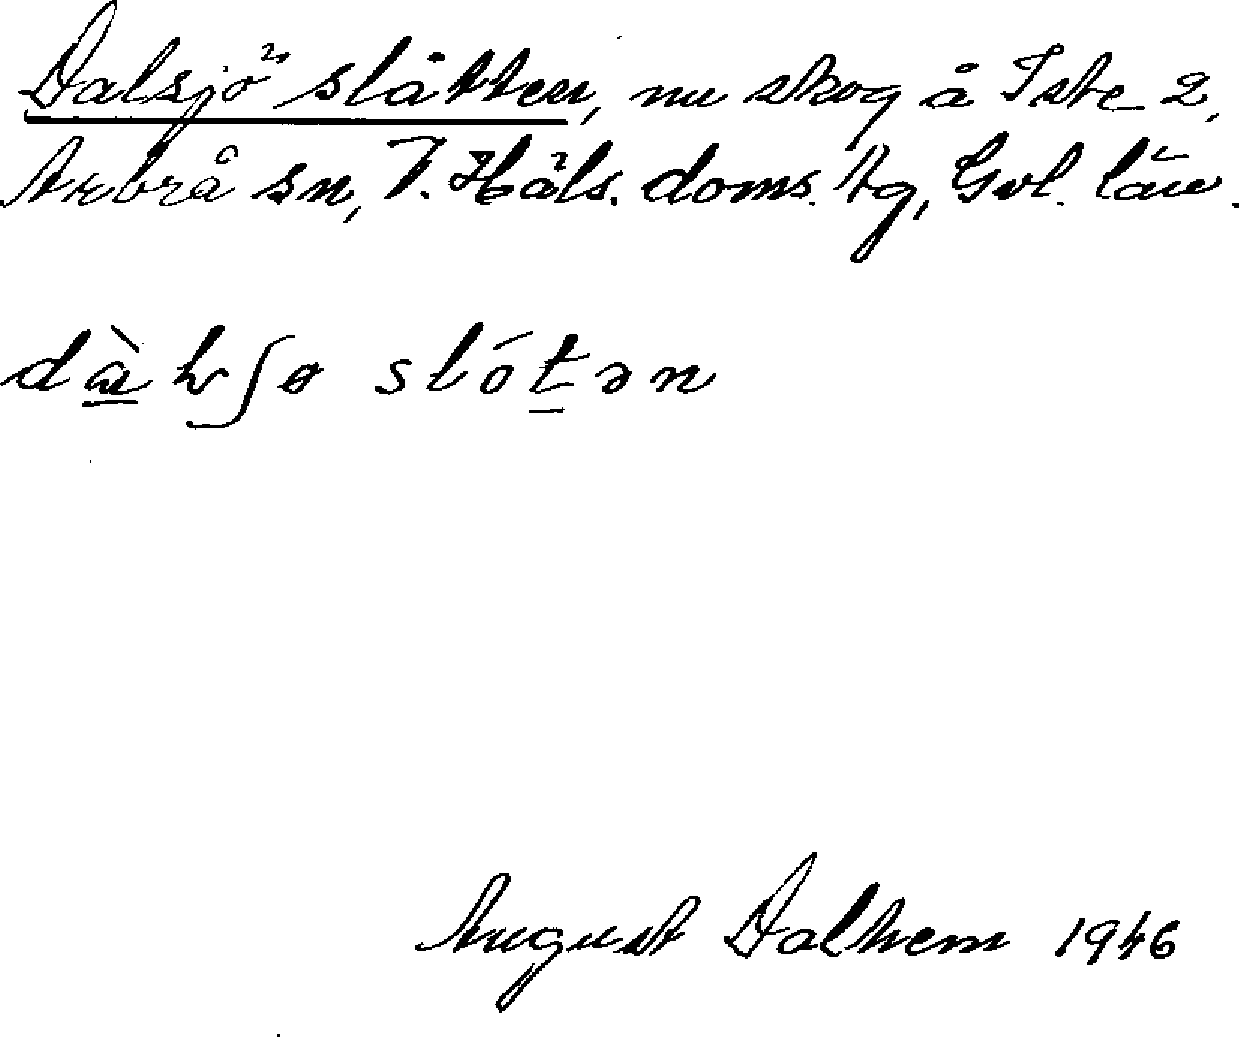 Dalsjö slåtten, nu skog å Iste 2,
Arbrå sn, V. Häls. doms. tg, Gvl. län.
slótən
August Dalhem 1946